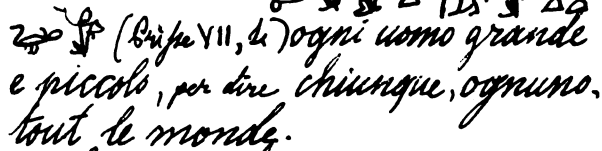 VII, ogni uomo grande
e piccolo, per dire chiunque, ognuno,
tout le monde.